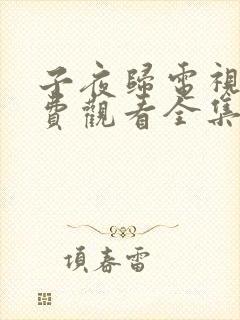 子夜歸電視
費觀看全集
項春雷